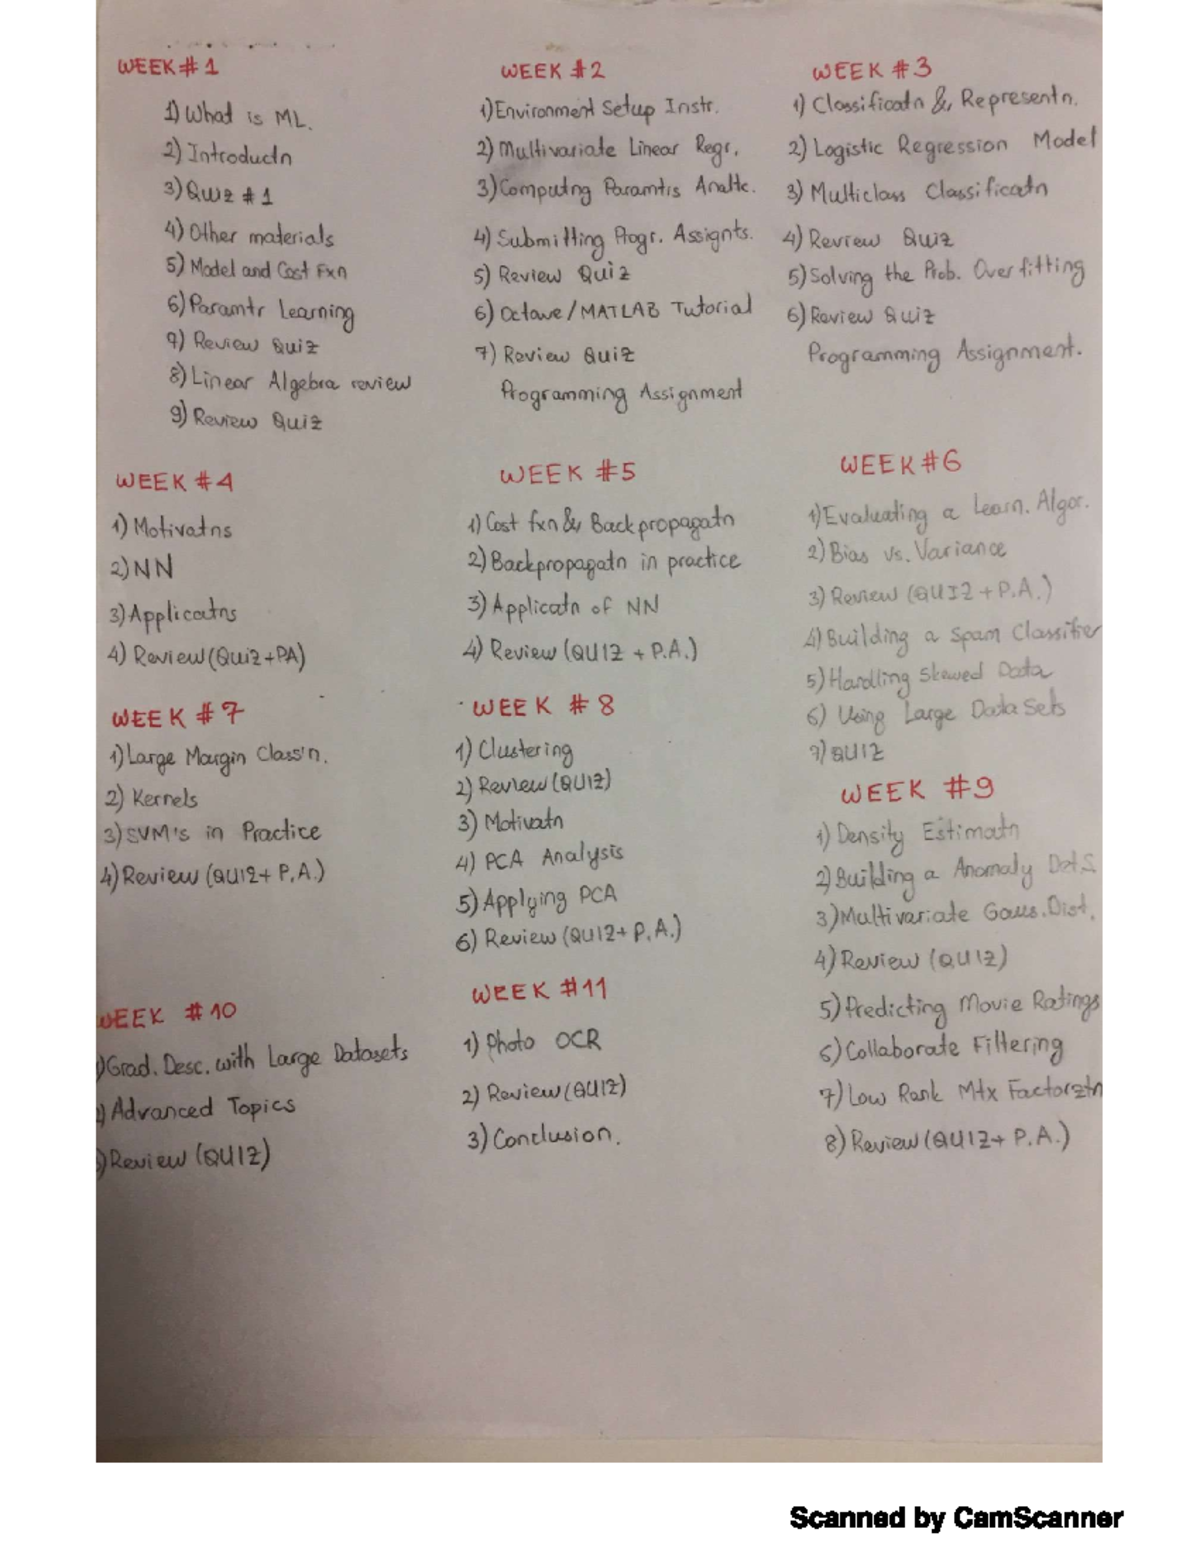 WEEK #1
1) What is ML.
2) Introductn
3) Quiz #1
4) Other materials
5) Model and Cost Fxn
6) Paramtr Learning
7) Review Quiz
8) Linear Algebra review
9) Review Quiz
WEEK #2
1) Environment Setup Instr.
2) Multivariate Linear Regr.
3) Computng Paramtrs Analtc.
4) Submitting Progr. Assignts.
5) Review Quiz
6) Octave/MATLAB Tutorial
7) Review Quiz
Programming Assignment
WEEK #3
1) Classificatn & Representn.
2) Logistic Regression Model
3) Multiclass Classificatn
4) Review Quiz
5) Solving the Prob. Overfitting
6) Review Quiz
Programming Assignment.
WEEK #4
1) Motivatns
2) NN
3) Applicatns
4) Review (Quiz+PA)
WEEK #5
1) Cost fxn & Backpropagatn
2) Backpropagatn in practice
3) Applicatn of NN
4) Review (QUIZ + P.A.)
WEEK #6
1) Evaluating a Learn. Algor.
2) Bias vs. Variance
3) Review (QUIZ + P.A.)
4) Building a Spam Classifier
5) Handling Skewed Data
6) Using Large Data Sets
7) QUIZ
WEEK #7
1) Large Margin Class'n.
2) Kernels
3) SVM's in Practice
4) Review (QUIZ+ P.A.)
WEEK #8
1) Clustering
2) Review (QUIZ)
3) Motivatn
4) PCA Analysis
5) Applying PCA
6) Review (QUIZ+ P.A.)
WEEK #9
1) Density Estimatn
2) Building a Anomaly Det.S
3) Multivariate Gaus. Dist.
4) Review (QUIZ)
5) Predicting Movie Ratings
6) Collaborate Filtering
7) Low Rank Mtx Factorztn
8) Review (QUIZ+ P.A.)
WEEK #10
) Grad. Desc. with Large Datasets
) Advanced Topics
) Review (QUIZ)
WEEK #11
1) Photo OCR
2) Review (QUIZ)
3) Conclusion.
Scanned by CamScanner